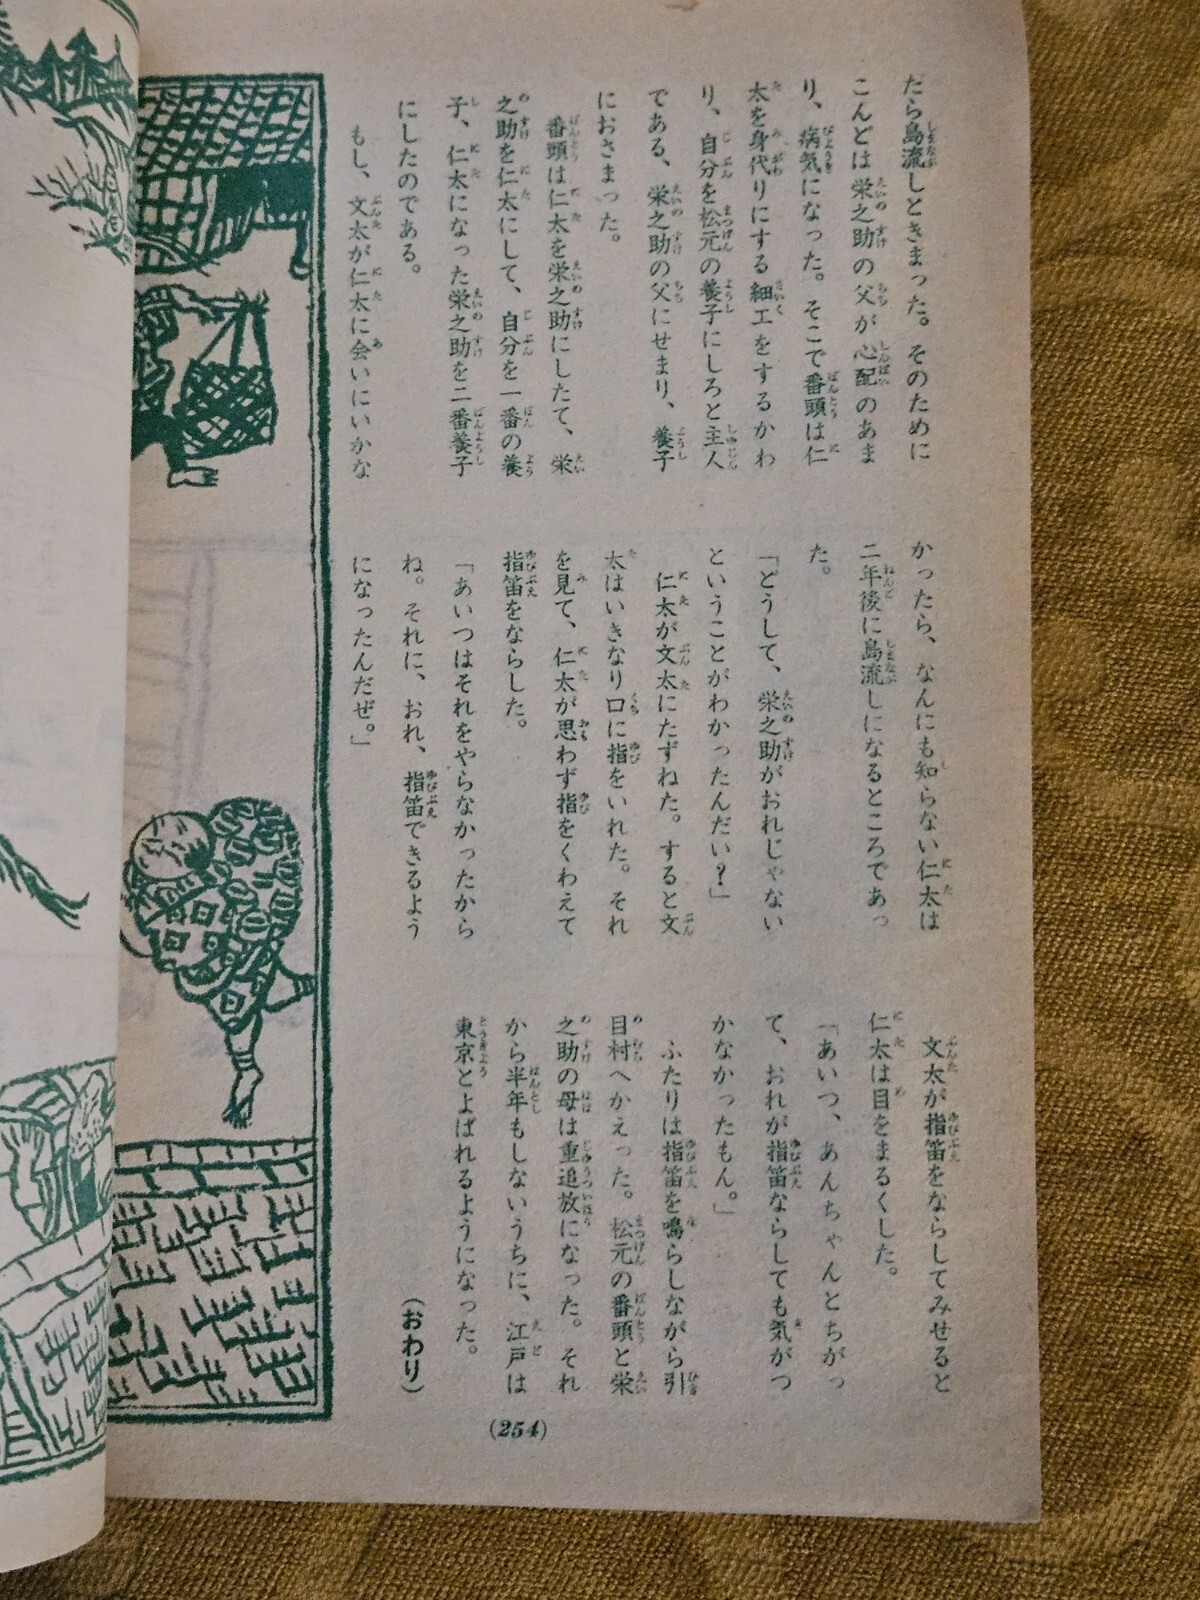 たら島流しときまった。そのために
こんどは栄之助の父が心配のあま
り、病気になった。そこで番頭は仁
太を身代りにする細工をするかわ
り、自分を松元の養子にしろと主人
である、栄之助の父にせまり、養子
におさまった。
番頭は仁太を栄之助にしたて、栄
之助を仁太にして、自分を一番の養
子、仁太になった栄之助を二番養子
にしたのである。
もし、文太が仁太に会いにいかな
かったら、なんにも知らない仁太は
二年後に島流しになるところであっ
た。
「どうして、栄之助がおれじゃない
ということがわかったんだい？」
仁太が文太にたずねた。すると文
太はいきなり口に指をいれた。それ
を見て、仁太が思わず指をくわえて
指笛をならした。
「あいつはそれをやらなかったから
ね。それに、おれ、指笛できるよう
になったんだぜ。」
文太が指笛をならしてみせると
仁太は目をまるくした。
「あいつ、あんちゃんとちがっ
て、おれが指笛ならしても気がつ
かなかったもん。」
ふたりは指笛を鳴らしながら引
目村へかえった。松元の番頭と栄
之助の母は重追放になった。それ
から半年もしないうちに、江戸は
東京とよばれるようになった。
（おわり）
(254)